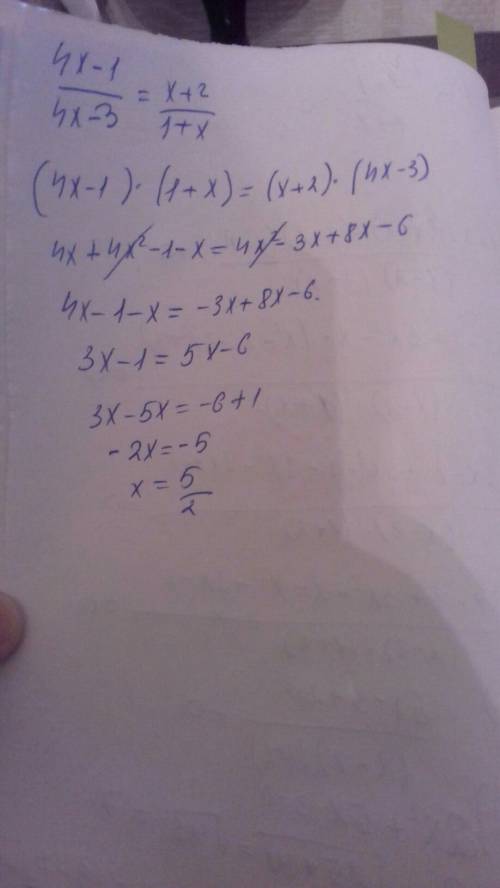 4x-1/4x-3 = x+2/1+x
(4x-1)·(1+x)=(x+2)·(4x-3)
4x+4x²-1-x=4x²-3x+8x-6
4x-1-x=-3x+8x-6.
3x-1=5x-6
3x-5x=-6+1
-2x=-5
x=5/2